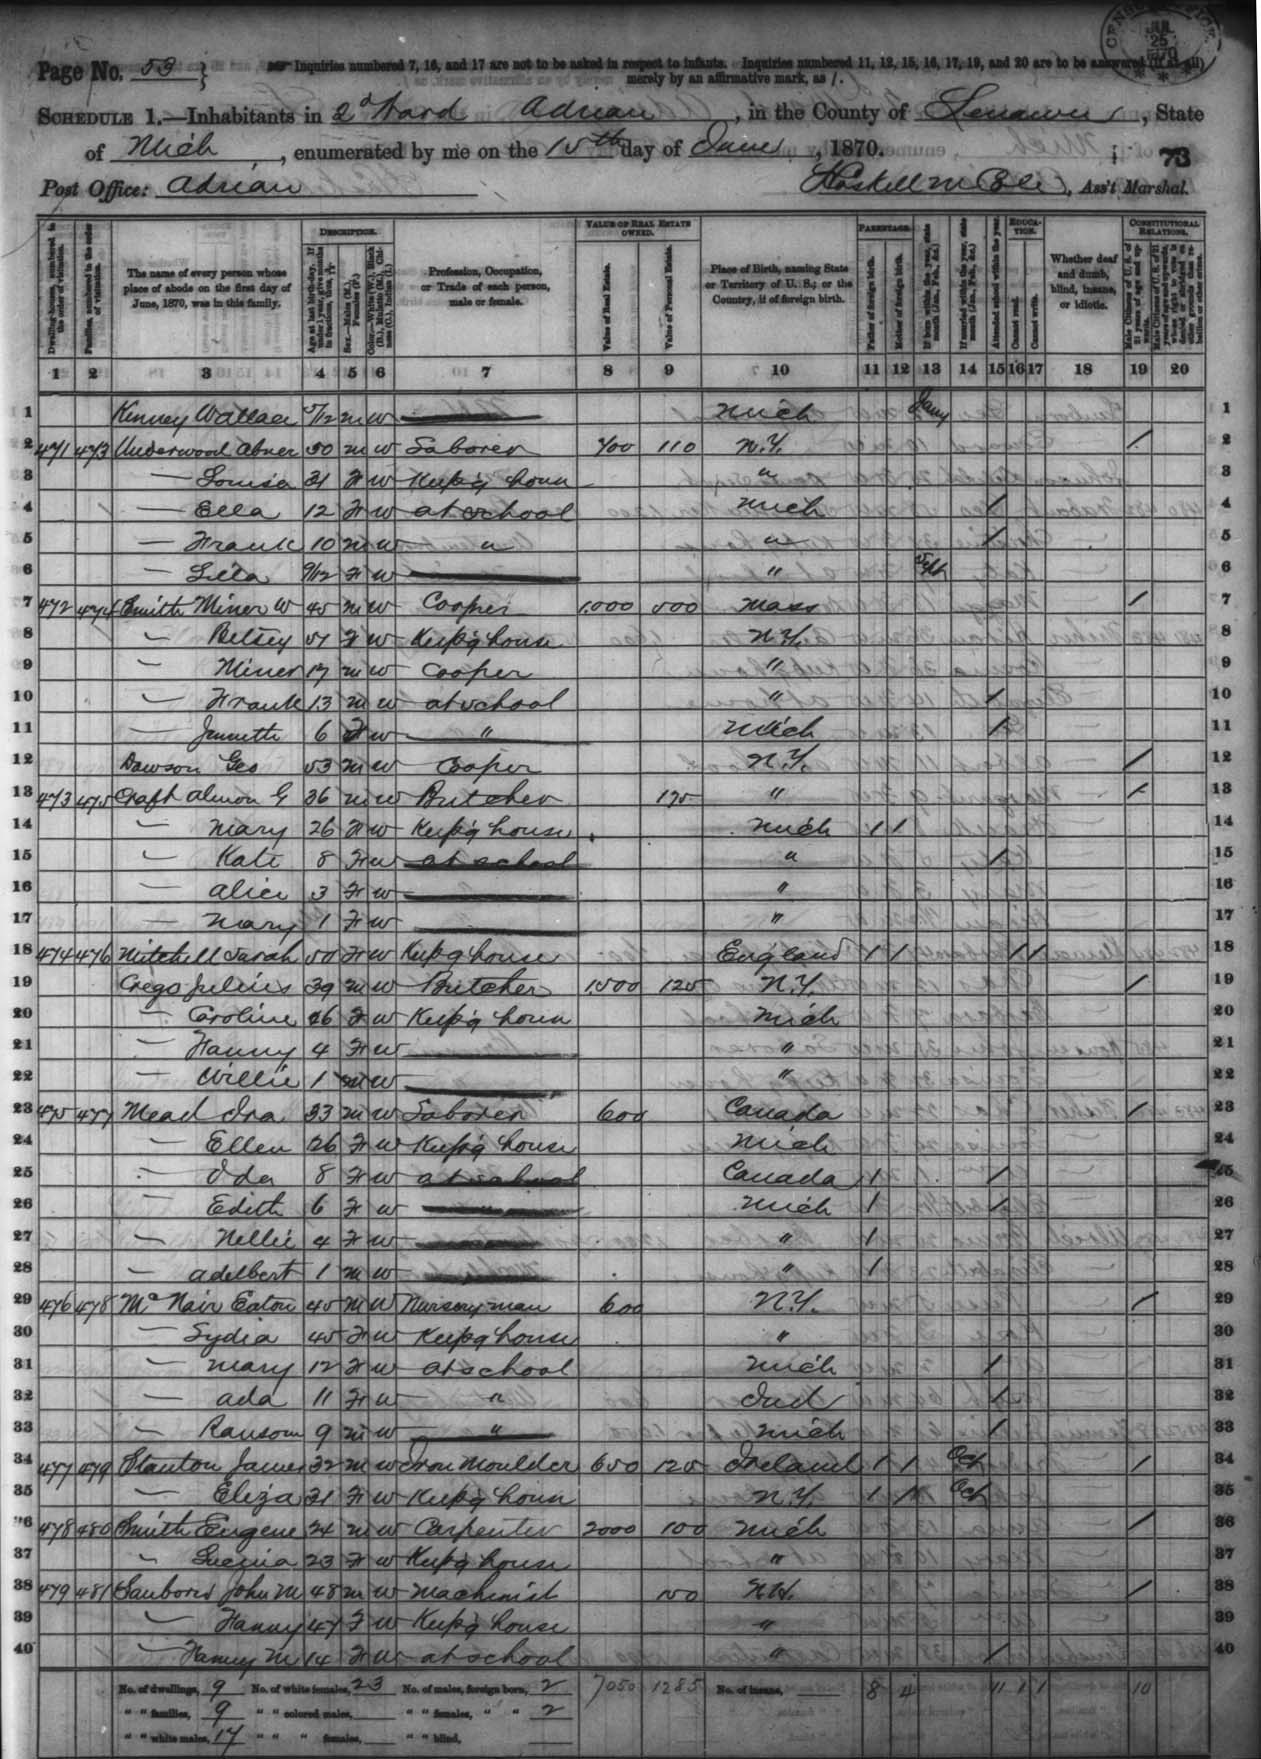 CENSUS OFFICE JUL 25 1870
Page No. 53 } Inquiries numbered 7, 16, and 17 are not to be asked in respect to infants. Inquiries numbered 11, 12, 15, 16, 17, 19, and 20 are to be answered (if at all)
merely by an affirmative mark, as /.
SCHEDULE 1.—Inhabitants in 2d Ward Adrian, in the County of Lenawee, State
of Mich, enumerated by me on the 15th day of June, 1870. 73
Post Office: Adrian Haskell M Cole, Ass't Marshal.
Dwelling-houses, numbered in the order of visitation.
Families, numbered in the order of visitation.
The name of every person whose place of abode on the first day of June, 1870, was in this family.
DESCRIPTION.
Age at last birth-day. If under 1 year, give months in fractions, thus, 3/12
Sex.—Males (M.), Females (F.)
Color.—White (W.), Black (B.), Mulatto (M.), Chinese (C.), Indian (I.)
Profession, Occupation, or Trade of each person, male or female.
VALUE OF REAL ESTATE OWNED.
Value of Real Estate.
Value of Personal Estate.
Place of Birth, naming State or Territory of U. S.; or the Country, if of foreign birth.
PARENTAGE.
Father of foreign birth.
Mother of foreign birth.
If born within the year, state month (Jan., Feb., &c.)
If married within the year, state month (Jan., Feb., &c.)
Attended school within the year.
EDUCATION.
Cannot read.
Cannot write.
Whether deaf and dumb, blind, insane, or idiotic.
CONSTITUTIONAL RELATIONS.
Male Citizens of U. S. of 21 years of age and upwards.
Male Citizens of U. S. of 21 years of age and upwards, whose right to vote is denied or abridged on other grounds than rebellion or other crime.
1 2 3 4 5 6 7 8 9 10 11 12 13 14 15 16 17 18 19 20
1 Kinney Wallace 5/12 M W Mich Jany 1
2 471 473 Underwood Abner 50 M W Laborer 700 110 N.Y. / 2
3 — Louisa 31 F W Keep'g house " 3
4 — Ella 12 F W at school Mich / 4
5 — Frank 10 M W " " / 5
6 — Lilla 9/12 F W " Sept 6
7 472 474 Smith Miner W 45 M W Cooper 1,000 500 Mass / 7
8 — Betsey 51 F W Keep'g house N.Y. 8
9 — Miner 17 M W Cooper " 9
10 — Frank 13 M W at school " / 10
11 — Jennette 6 F W " Mich / 11
12 Dawson Geo 53 M W Cooper N.Y. / 12
13 473 475 Craft Almon G 36 M W Butcher 175 " / 13
14 — Mary 26 F W Keep'g house Mich / / 14
15 — Kate 8 F W at school " / 15
16 — Alice 3 F W " 16
17 — Mary 1 F W " 17
18 474 476 Mitchell Sarah 50 F W Keep'g house England / / / / 18
19 Crego Julius 39 M W Butcher 1,500 125 N.Y. / 19
20 — Caroline 26 F W Keep'g house Mich 20
21 — Fanny 4 F W " 21
22 — Willie 1 M W " 22
23 475 477 Mead Ira 33 M W Laborer 600 Canada / 23
24 — Ellen 26 F W Keep'g house Mich 24
25 — Ida 8 F W at school Canada / / 25
26 — Edith 6 F W " Mich / / 26
27 — Nellie 4 F W " / 27
28 — Adelbert 1 M W " / 28
29 476 478 McNair Eaton 45 M W Nursery man 600 N.Y. / 29
30 — Lydia 45 F W Keep'g house " 30
31 — Mary 12 F W at school Mich / 31
32 — Ada 11 F W " Ind / 32
33 — Ransom 9 M W " Mich / 33
34 477 479 Stanton James 32 M W Iron Moulder 650 125 Ireland / / Oct / 34
35 — Eliza 21 F W Keep'g house N.Y. / / Oct 35
36 478 480 Smith Eugene 24 M W Carpenter 2000 100 Mich / 36
37 — 23 F W Keep'g house " 37
38 479 481 Sanborn John M 48 M W Machinist 150 N.H. / 38
39 — Fanny 47 F W Keep'g house " 39
40 — Fanny M 14 F W at school " / 40
No. of dwellings, 9 No. of white females, 23 No. of males, foreign born, 2 7050 1285 No. of insane, 8 4 11 1 1 10
" " families, 9 " " colored males, " " females, " " 2
" " white males, 17 " " " females, " " blind,